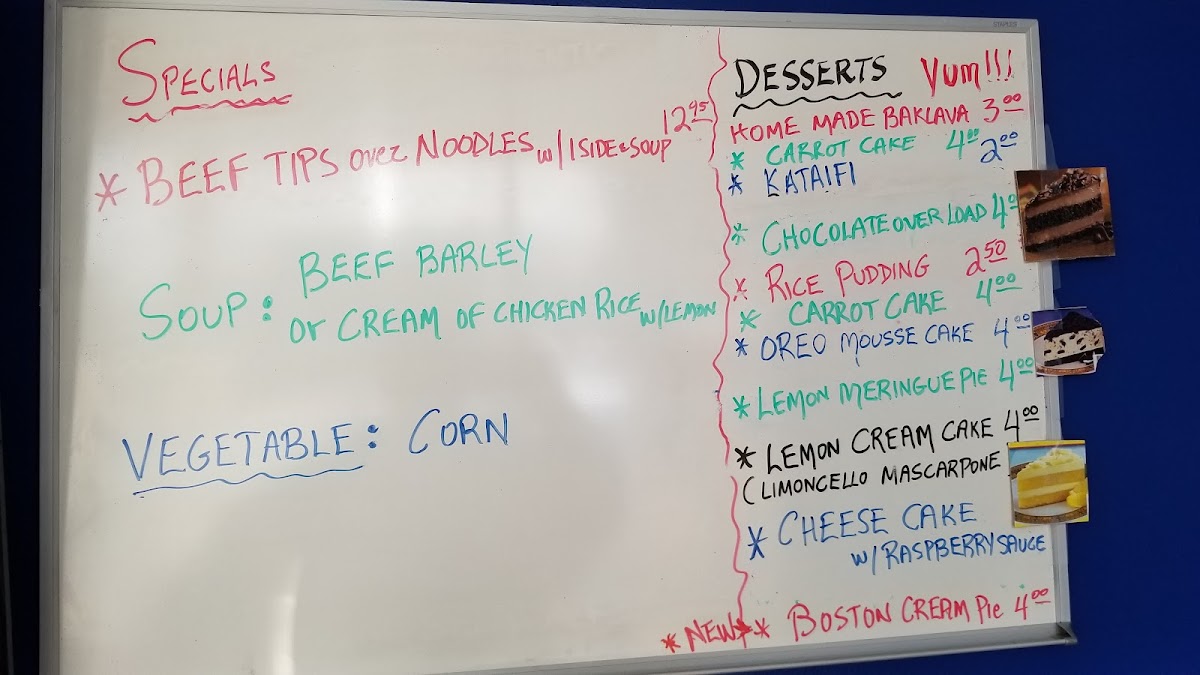 SPECIALS
* BEEF TIPS over NOODLES w/ 1 SIDE & SOUP 12 95
SOUP: BEEF BARLEY
or CREAM OF CHICKEN RICE w/LEMON
VEGETABLE: CORN
DESSERTS Yum!!!
HOME MADE BAKLAVA 3 00
* CARROT CAKE 4 00
* KATAIFI 2 00
* CHOCOLATE OVER LOAD 4 0
* RICE PUDDING 2 50
* CARROT CAKE 4 00
* OREO MOUSSE CAKE 4 00
* LEMON MERINGUE PIE 4 00
* LEMON CREAM CAKE 4 00
(LIMONCELLO MASCARPONE
* CHEESE CAKE
w/ RASPBERRY SAUCE
* NEW * * BOSTON CREAM Pie 4 00